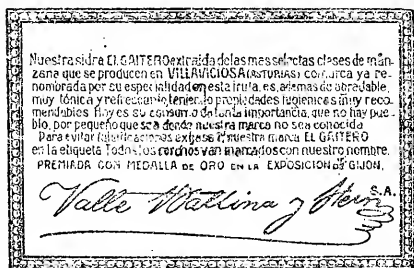 Nuestra sidra EL GAITERO extraida de las mas selectas clases de man-
zana que se producen en VILLAVICIOSA (ASTURIAS) comarca ya re-
nombrada por su especialidad en esta fruta, es, ademas de agradable,
muy tónica y refrescante, teniendo propiedades higienicas muy reco-
mendables. Hoy es su consumo de tanta importancia, que no hay pue-
blo, por pequeño que sea donde nuestra marca no sea conocida
Para evitar falsificaciones exijase nuestra marca EL GAITERO
en la etiqueta Todos los corchos van marcados con nuestro nombre.
PREMIADA CON MEDALLA DE ORO EN LA EXPOSICION DE GIJON.
Valle Ballina y Fern
S.A.